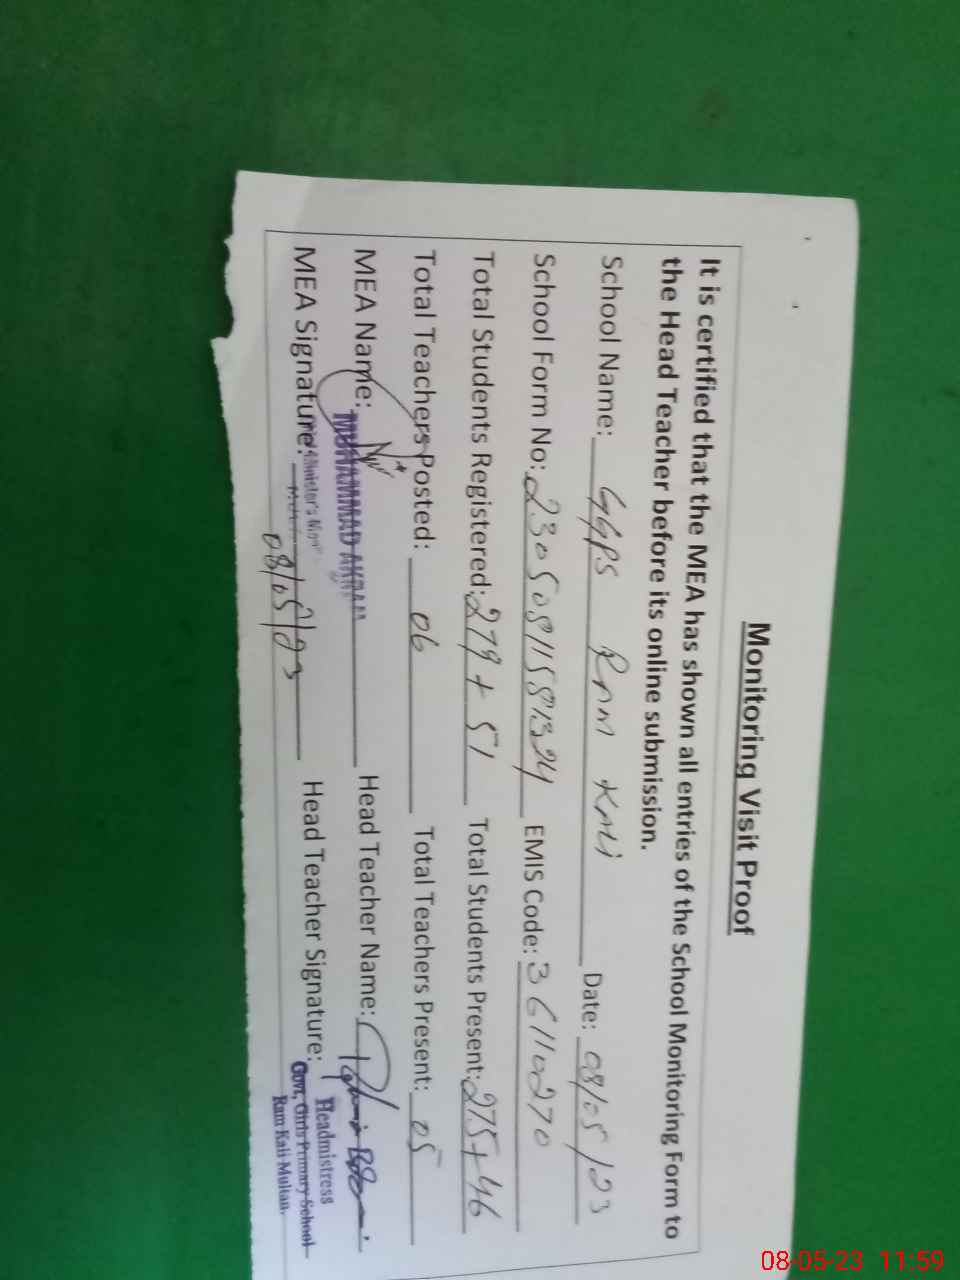 Monitoring Visit Proof
It is certified that the MEA has shown all entries of the School Monitoring Form to
the Head Teacher before its online submission.
School Name: GGPS Ram Kali Date: 08/05/23
School Form No: 23050811581324 EMIS Code: 36110270
Total Students Registered: 279 + 51 Total Students Present: 275+46
Total Teachers Posted: 06 Total Teachers Present: 05
MEA Name: MUHAMMAD AKRAM Head Teacher Name:
MEA Signature: Head Teacher Signature:
08/05/23
Headmistress
Govt, Girls Primary School
Ram Kali Multan.
08-05-23 11:59